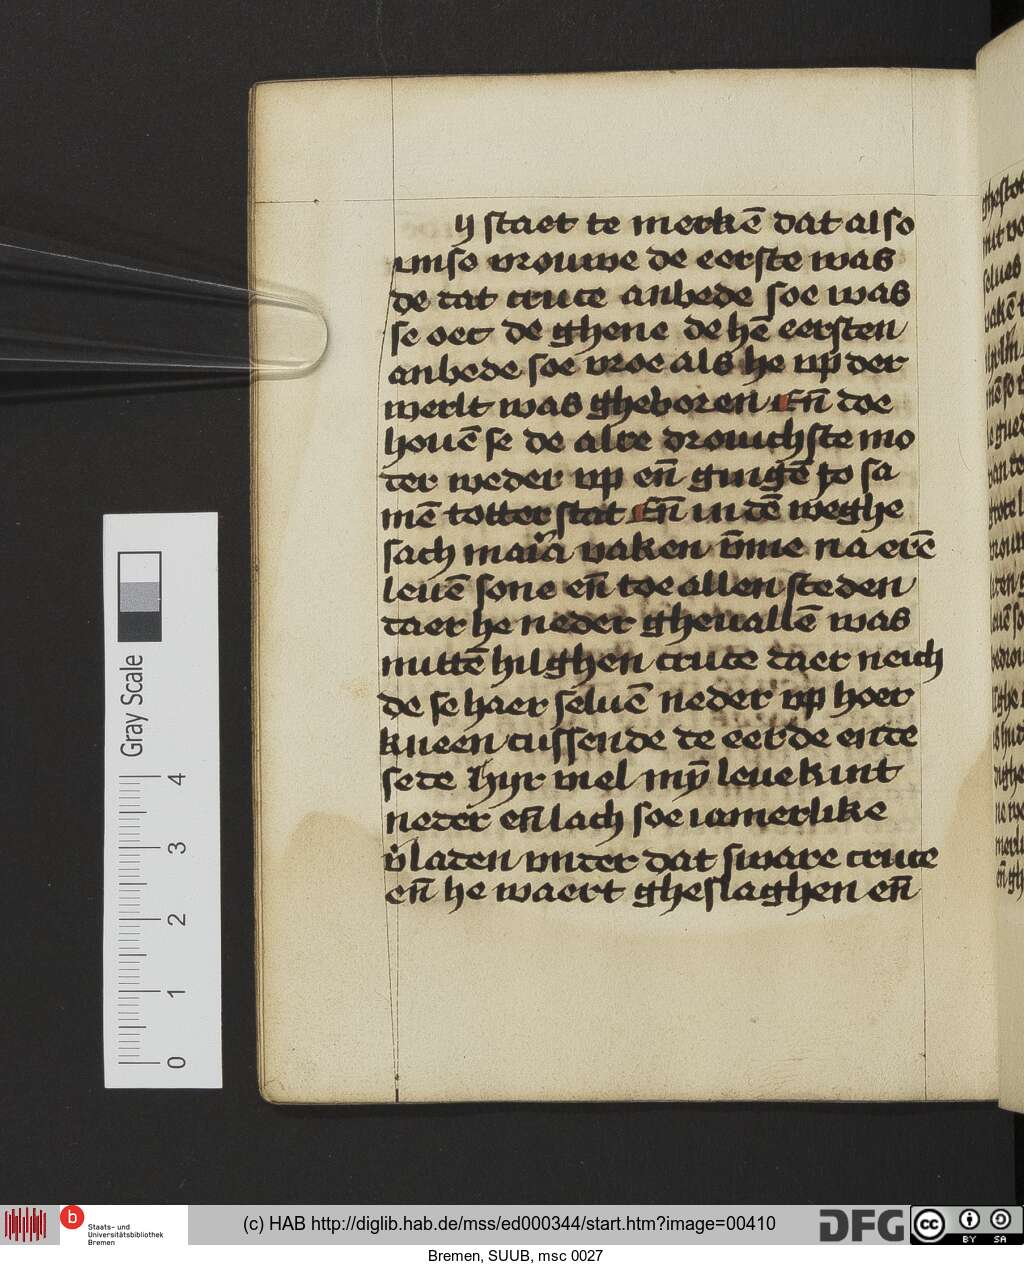 ij staet te merkē dat also
unso vrouwe de eerste was
de dat cruce anbede soe was
se oec de ghene de hē eersten
anbede soe vroe als he up der
werlt was gheboren Eñ doe
houē se de alre drouichste mo
der weder up eñ gingē to sa
mē totter stat Eñ in dē weghe
sach maria vaken v̄me na erē
leuē sone eñ toe allen steden
daer he neder gheuallē was
mittē hilghen cruce daer neich
de se haer seluē neder up hoer
kneen cussende de eerde ende
sede hyr viel mȳ leue kint
neder eñ lach soe iamerlike
v̄laden under dat sware cruce
eñ he waert gheslaghen eñ
Gray Scale
0 1 2 3 4
Staats- und
Universitätsbibliothek
Bremen
(c) HAB http://diglib.hab.de/mss/ed000344/start.htm?image=00410
DFG
cc BY SA
Bremen, SUUB, msc 0027